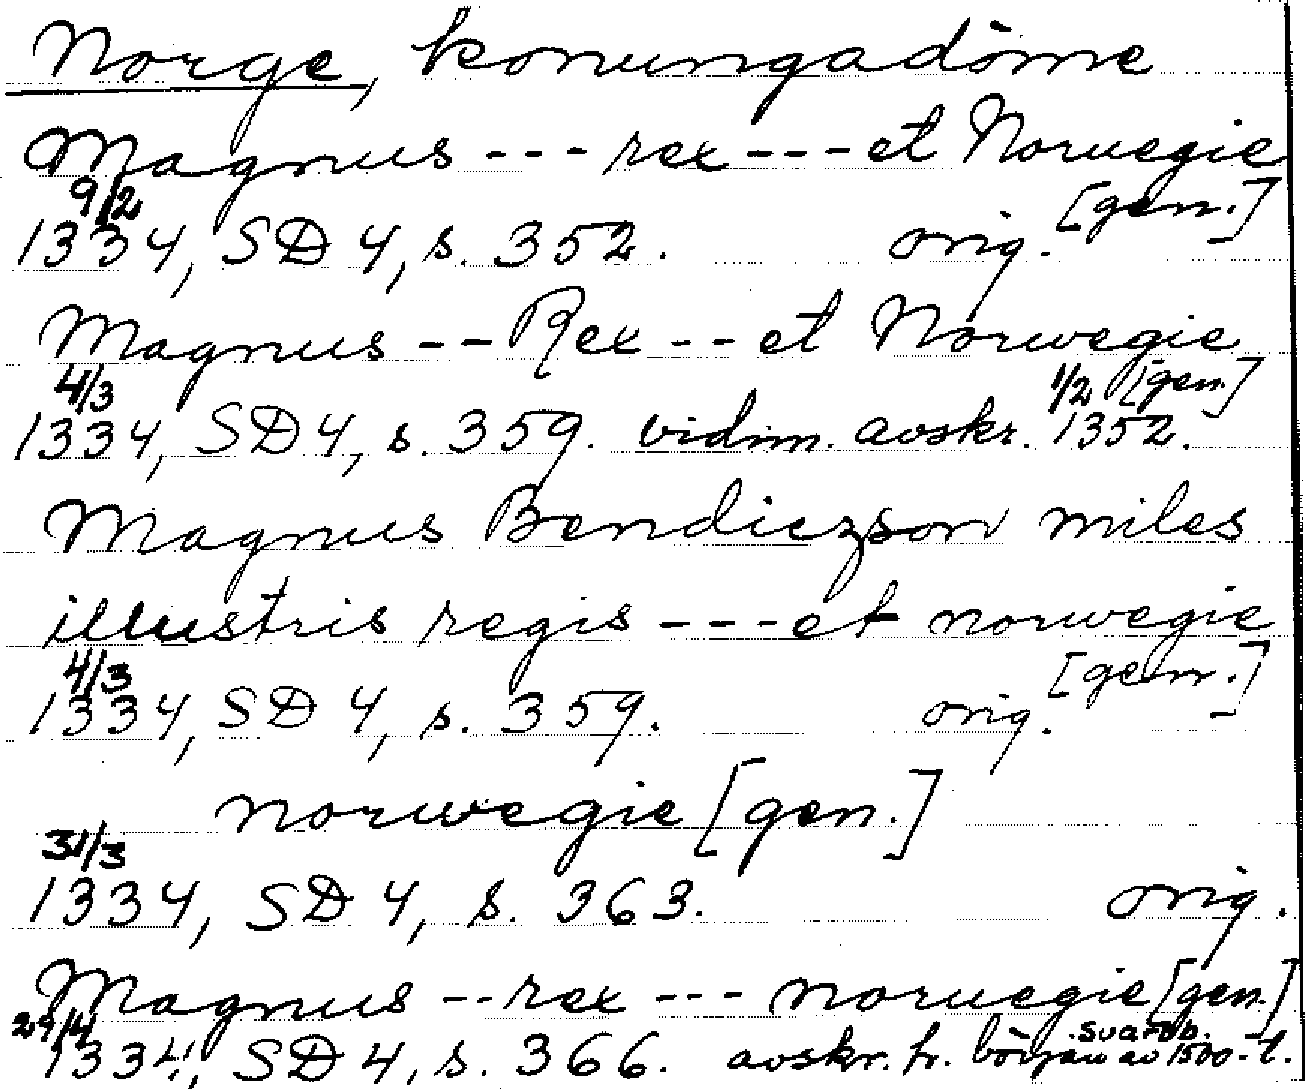 Norge, konungadöme
Magnus --- rex --- et Noruegie
[gen.]
9/2
1334, SD 4, s. 352. orig.
Magnus -- Rex -- et Norwegie
[gen.]
4/3 1/2
1334, SD 4, s. 359. vidim. avskr. 1352.
Magnus Bendiczson miles
illustris regis --- et norwegie
[gen.]
4/3
1334, SD 4, s. 359. orig.
norwegie [gen.]
31/3
1334, SD 4, s. 363. orig.
Magnus -- rex --- noruegie [gen.]
29/4
1334, SD 4, s. 366. avskr. fr. början av 1500-t.